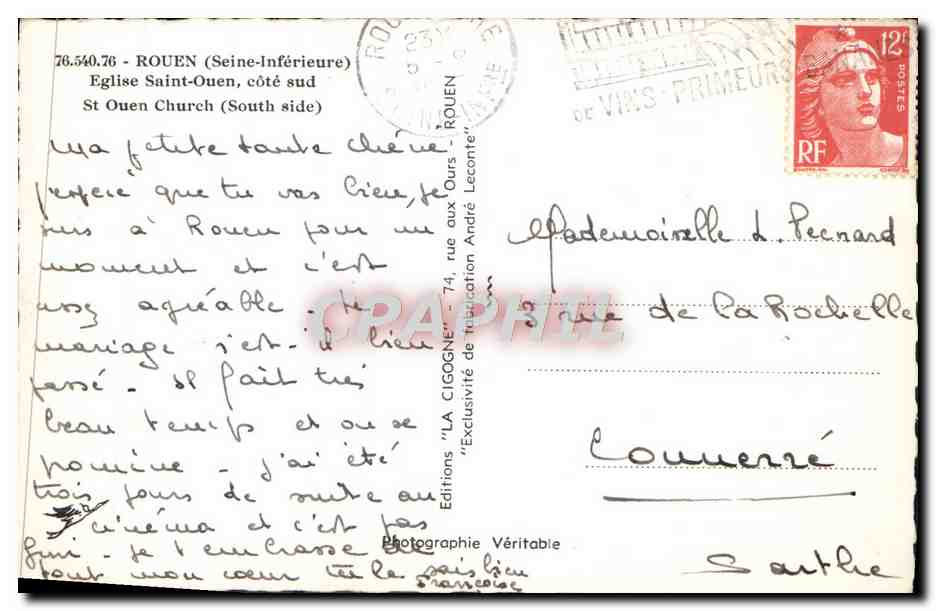 76.540.76 - ROUEN (Seine-Inférieure)
Eglise Saint-Ouen, côté sud
St Ouen Church (South side)
Ma petite tante chérie
j'espère que tu vas bien, je
suis à Rouen pour un
moment et c'est
assez agréable. Le
mariage s'est-il bien
passé - Il fait très
beau temps et on se
promène - j'ai été
trois jours de suite au
cinéma et c'est pas
fini - je t'embrasse de
tout mon coeur tu le sais bien
Françoise
Editions "LA CIGOGNE" - 74, rue aux Ours - ROUEN
"Exclusivité de fabrication André Leconte"
Photographie Véritable
23H
DE VINS-PRIMEURS
12F
POSTES
RF
Mademoiselle L. Pecnard
3 rue de la Rochelle
Connerré
Sarthe
CPAPHIL